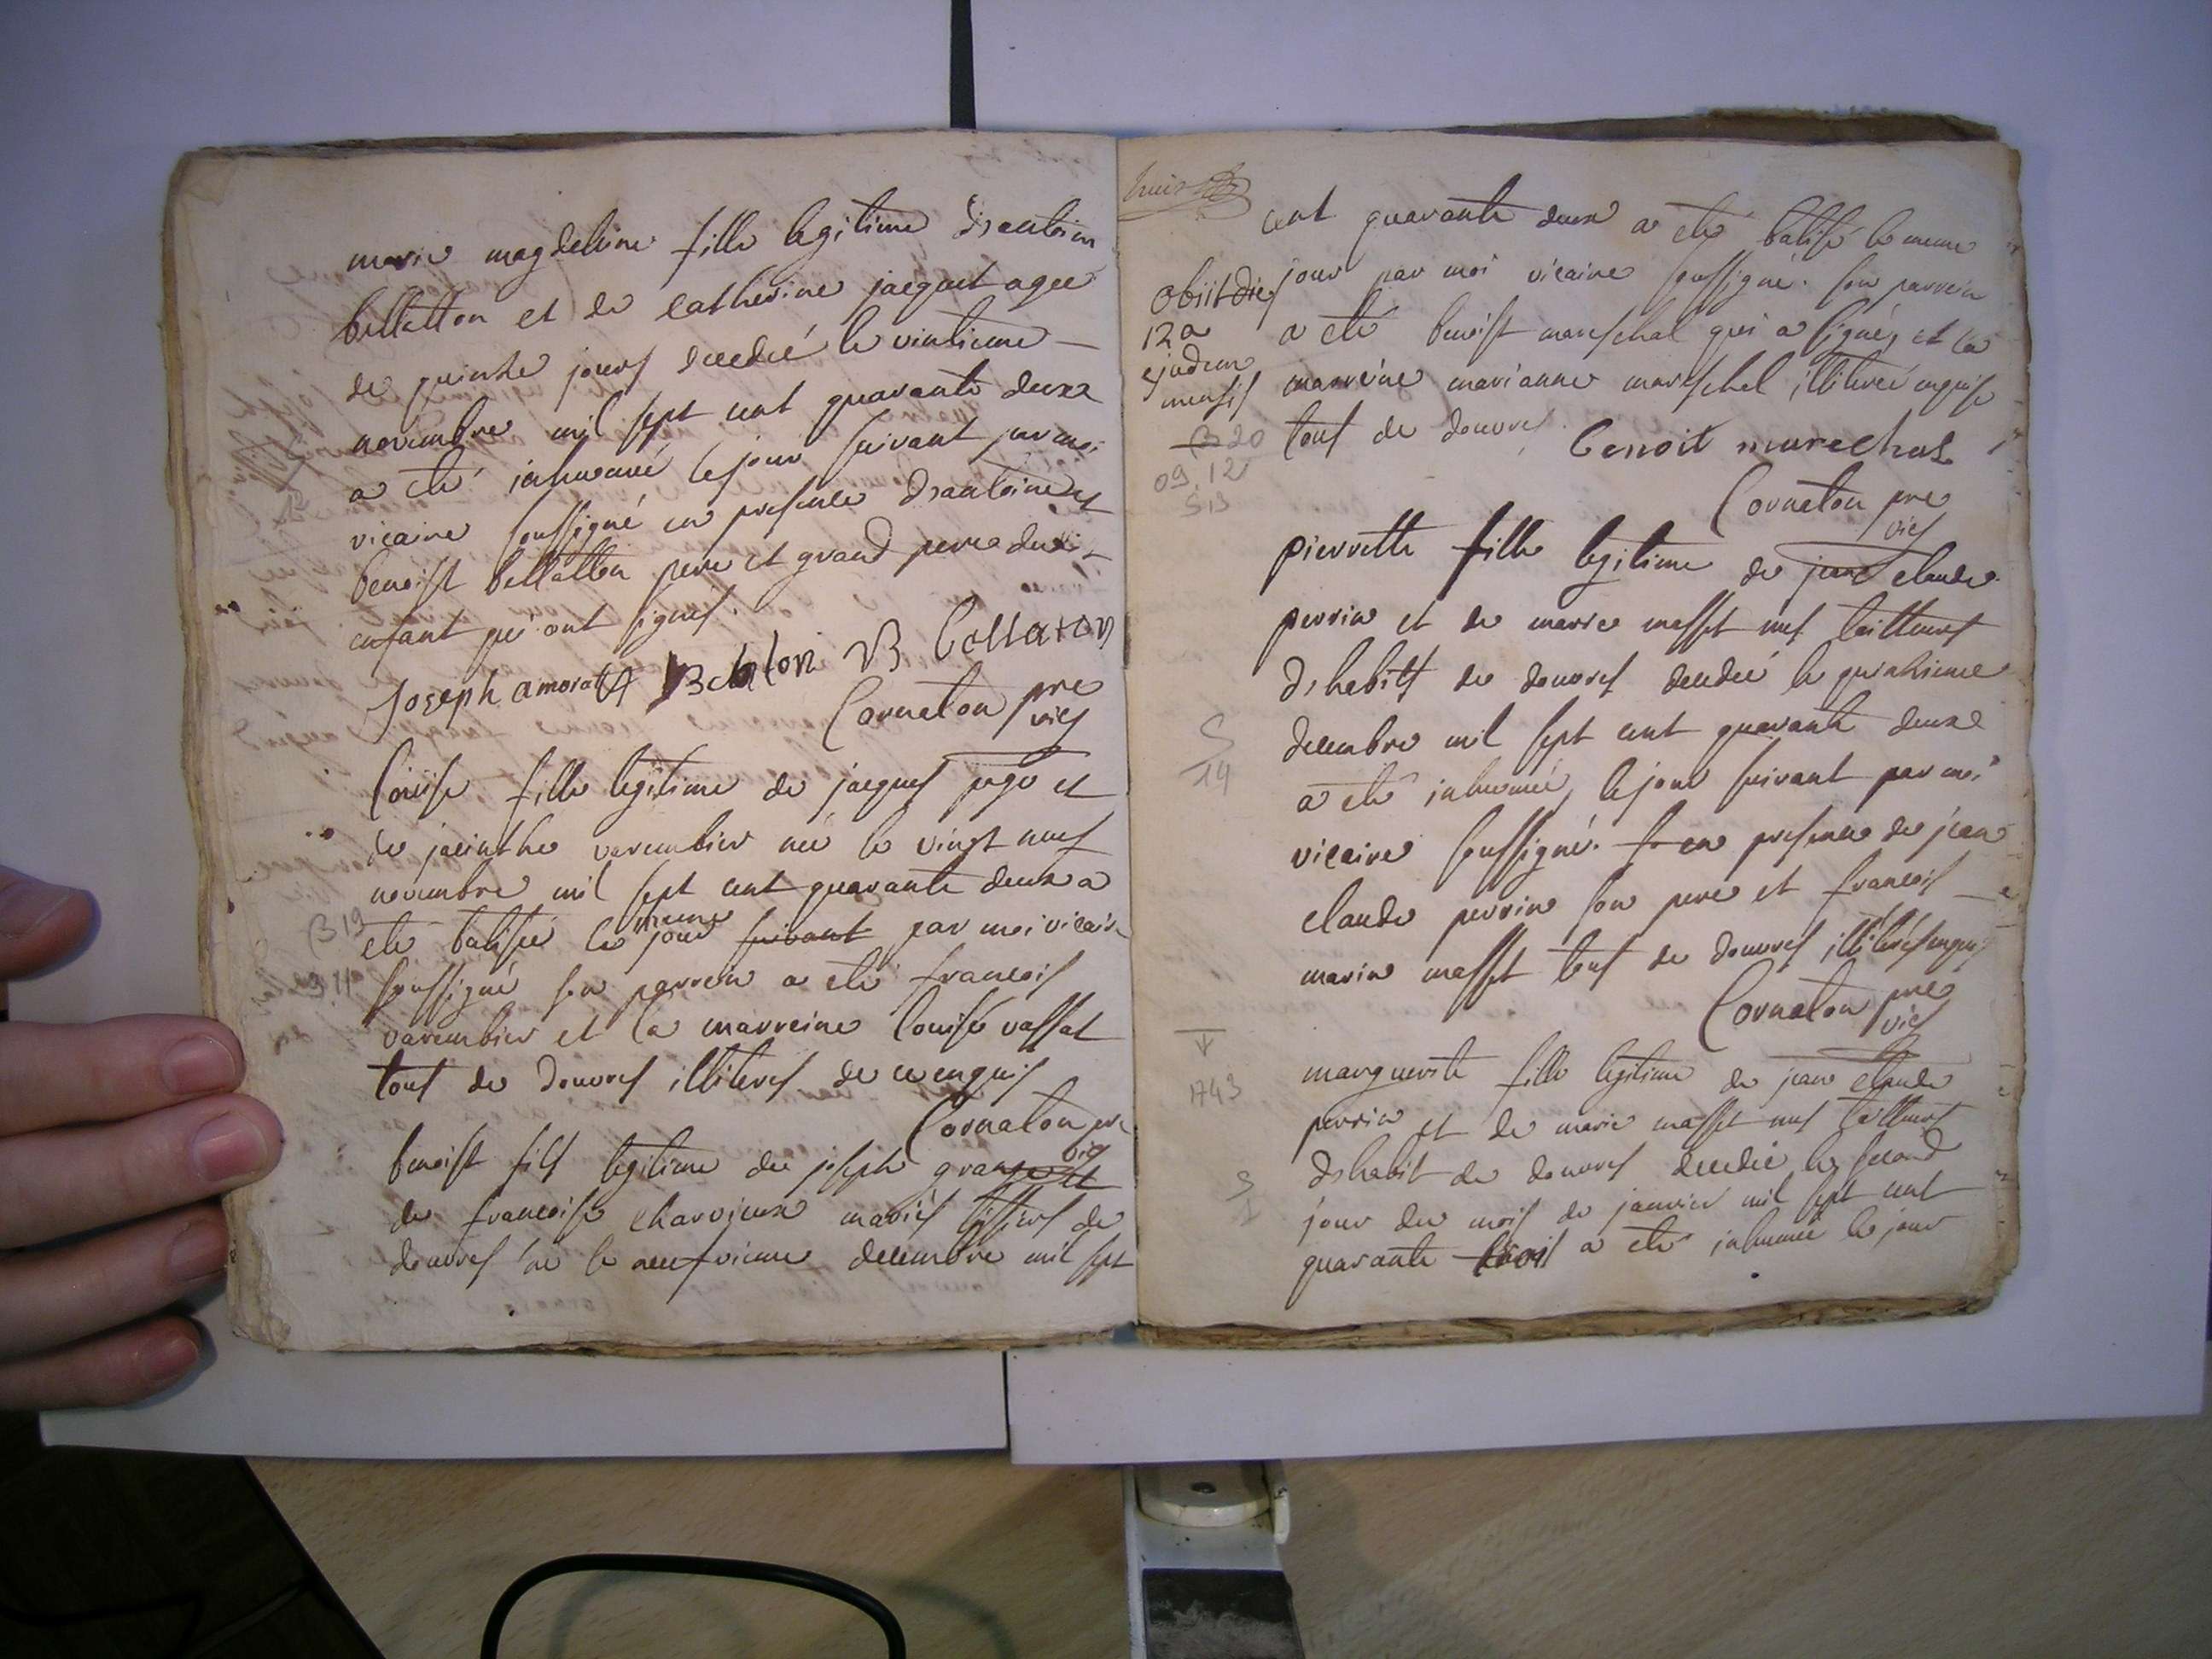 marie magdeline fille legitime d'antoine
bellatton et de catherine jacquet agee
de quinze jours decedé le vintieme
novembre mil sept cent quarante deux
a eté inhumé le jour suivant par moi
vicaire soussigné en presence d'antoine et
benoist bellatton pere et grand pere du dit
enfant qui ont signés.
Joseph amorat A Bellaton B bellaton
Cornaton pre
vics
Louise fille legitime de jacques pego et
de jacinthe varembier né le vingt neuf
novembre mil sept cent quarante deux a
B 19
eté batisée le meme jour suivant par moi vicaire
9 11
soussigné son parrein a eté francois
varembier et la marreine louise vassat
tous de douvres illiteres de ce enquis
Cornaton pre
vics
benoist fils legitime de joseph grange et
de francoise charvieux mariés tissiers de
douvres né le neufvieme decembre mil sept
cent quarante deux a eté batisé le meme
jour par moi vicaire soussigné. son parrein
a eté benoist mareschal qui a signé, et la
marreine marianne mareschal illiterée enquise
tous de douvres.
Obiit die
12a
ejusdem
mensis
B 20
09.12
S 13
benoit marechal
Cornaton pre
vics
pierrette fille legitime de jean claude
perrin et de marie masset tailleurs
d'habits de douvres decedée le quinzieme
decembre mil sept cent quarante deux
S
14
a eté inhumée, le jour suivant par moi
vicaire soussigné. en presence de jean
claude perrin son pere et francois
marin masset tous de douvres illiterés enquis
Cornaton pre
vics
1743
marguerite fille legitime de jean claude
perrin et de marie masset tailleurs
d'habit de douvres decedée, le second
S
1
jour du mois de janvier mil sept cent
quarante trois a eté inhumée le jour